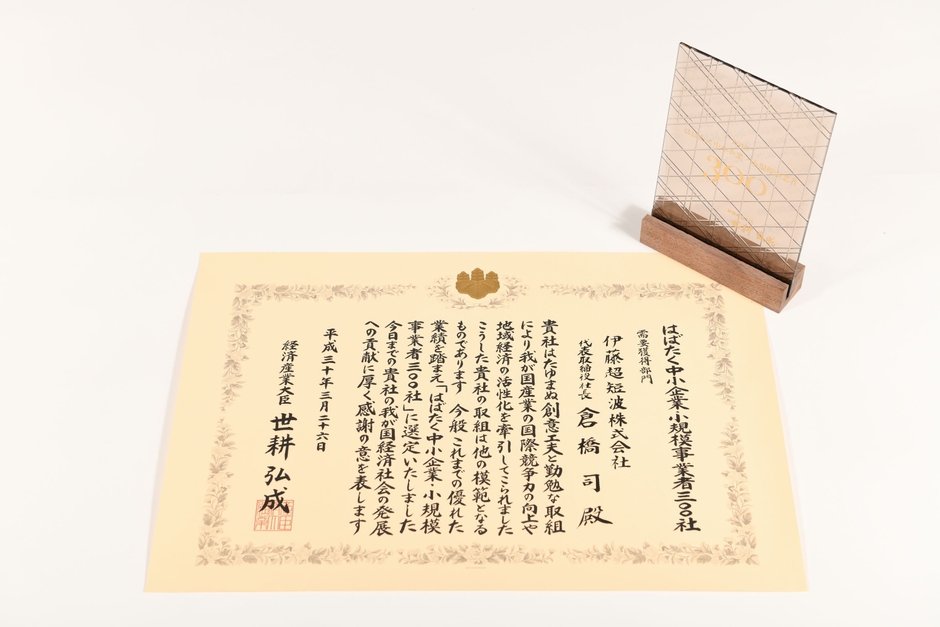 はばたく中小企業・小規模事業者三〇〇社
需要獲得部門
伊藤超短波株式会社
代表取締役社長 倉橋司殿
貴社はたゆまぬ創意工夫と勤勉な取組
により我が国産業の国際競争力の向上や
地域経済の活性化を牽引してこられました
こうした貴社の取組は他の模範となる
ものであります 今般これまでの優れた
業績を踏まえ「はばたく中小企業・小規模
事業者三〇〇社」に選定いたしました
今日までの貴社の我が国経済社会の発展
への貢献に厚く感謝の意を表します
平成三十年三月二十六日
経済産業大臣 世耕弘成
300